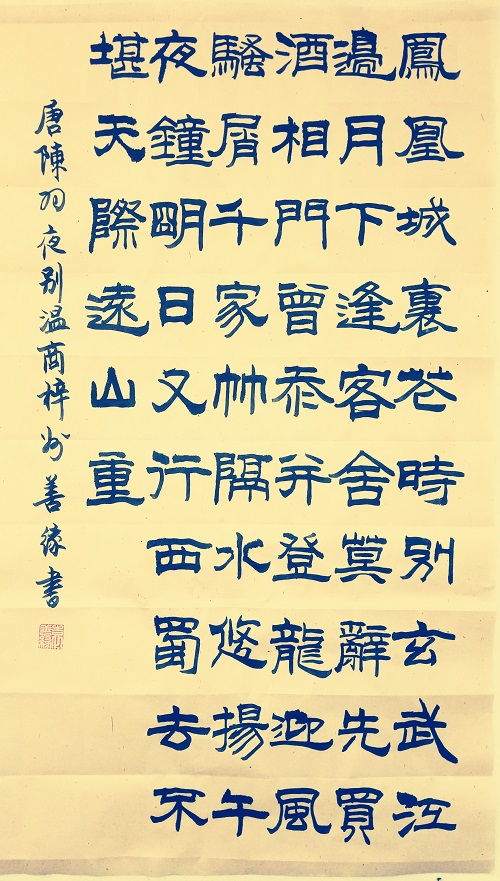 鳳凰城裏花時別玄武江
邊月下逢客舍莫辭先買
酒相門曾忝并登龍迎風
騷屑千家竹隔水悠揚午
夜鐘明日又行西蜀去不
堪天際遠山重
唐陳羽夜别温商梓州善緣書